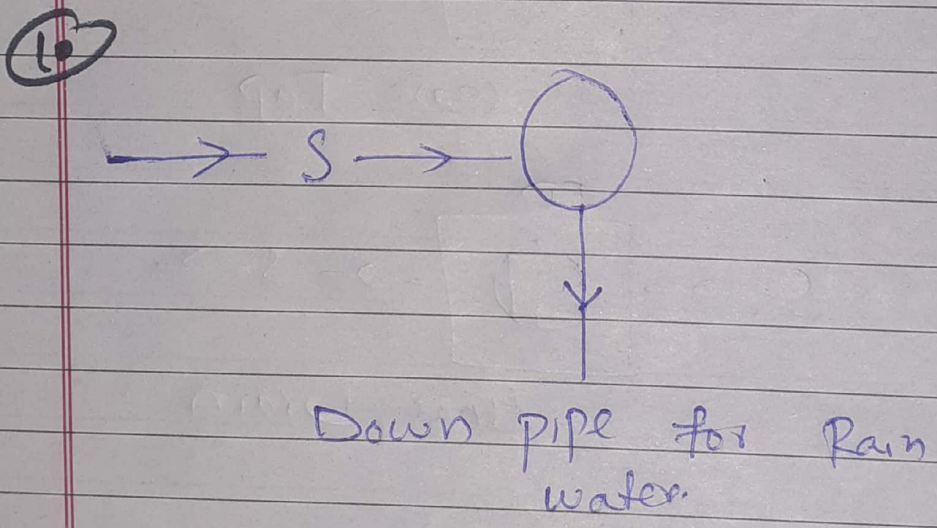 1
S
Down pipe for Rain
water.